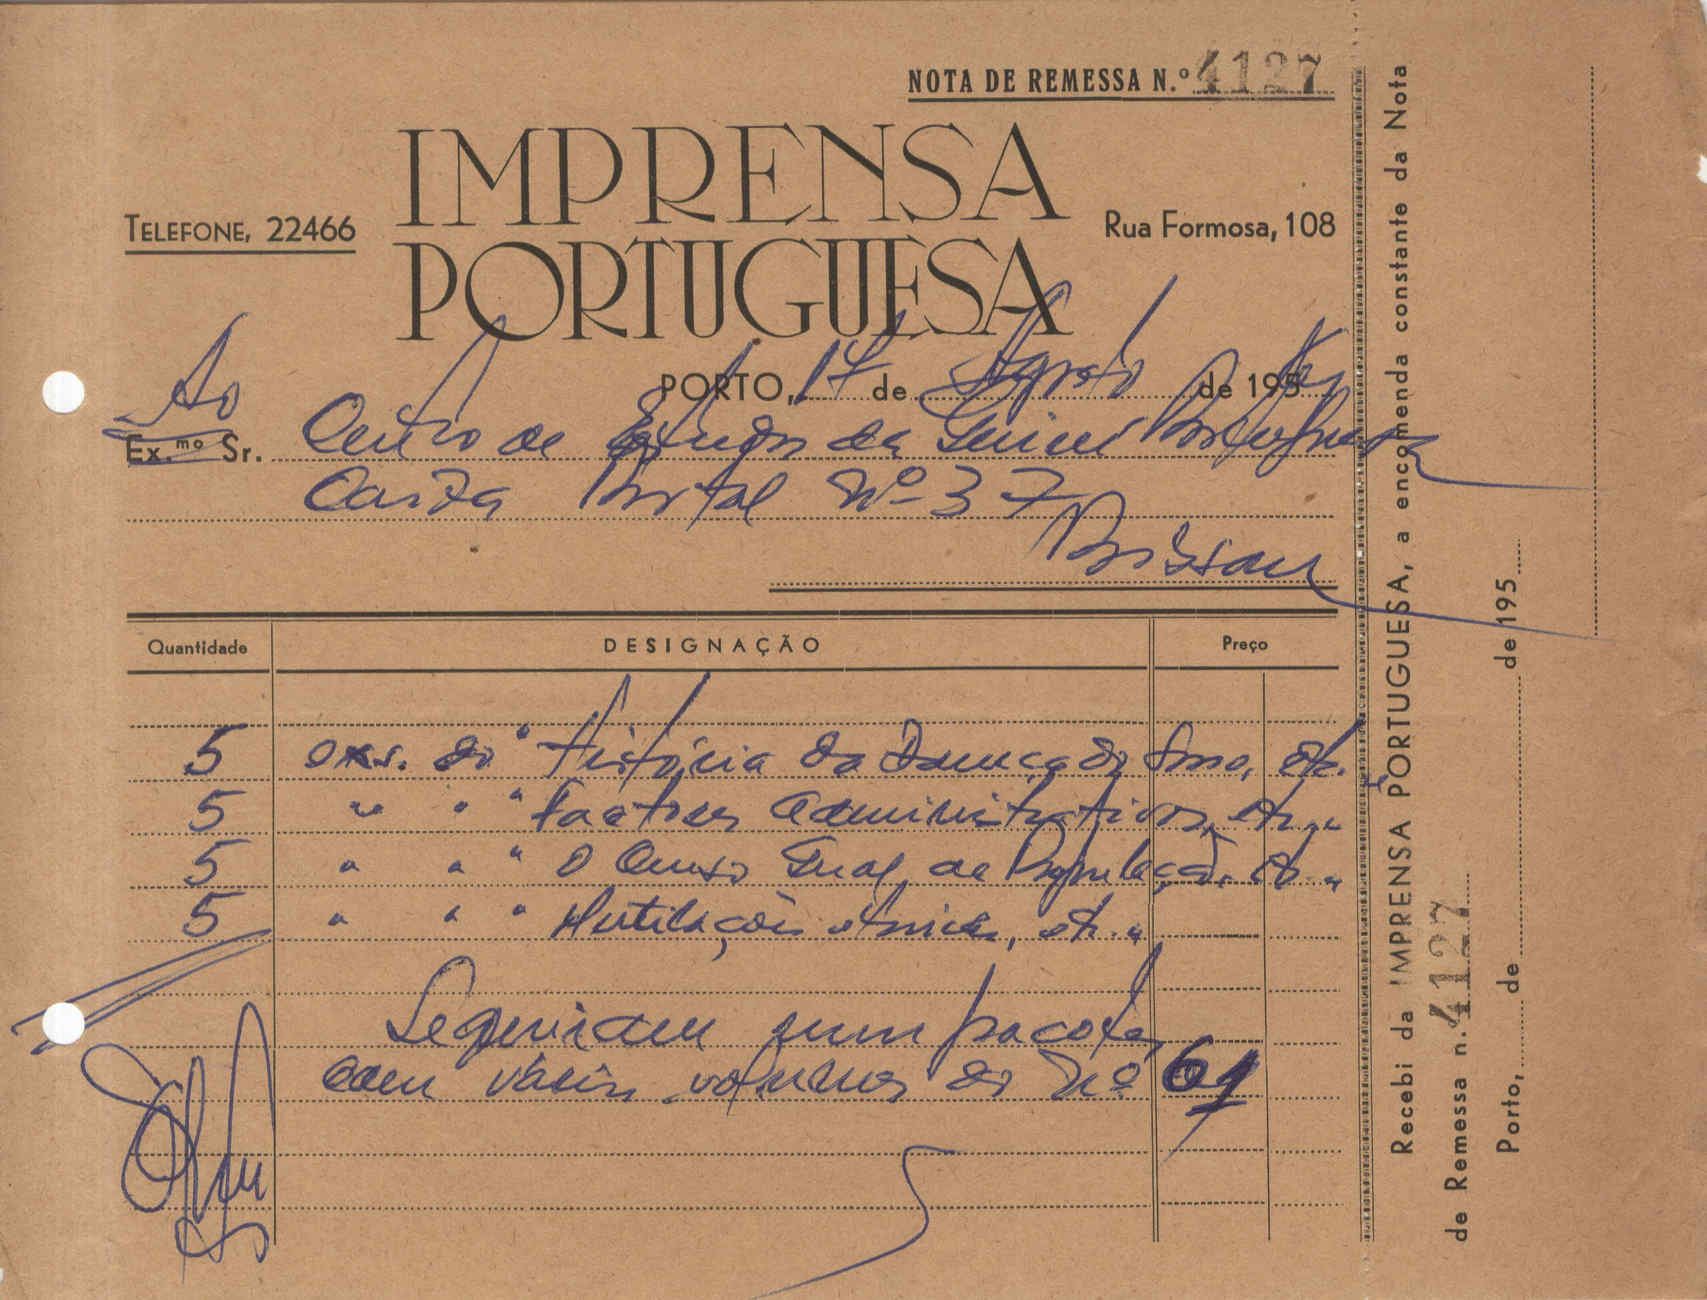 NOTA DE REMESSA N.º 4127
IMPRENSA
PORTUGUESA
TELEFONE, 22466
Rua Formosa, 108
PORTO, 17 de Agosto de 195
Ao
Ex.mo Sr. Centro de Estudos da Guiné Portuguesa
Caixa Postal Nº 37
Bissau
Quantidade DESIGNAÇÃO Preço
5 exs. do " História da Doença do Sono, etc.
5 " " " Factores administrativos, etc. "
5 " " " O Censo Geral da População, etc. "
5 " " " Mutilações étnicas, etc. "
Seguiram num pacote
com vários volumes do Nº 61
Recebi da IMPRENSA PORTUGUESA, a encomenda constante da Nota
de Remessa n.º 4127
Porto, de de 195